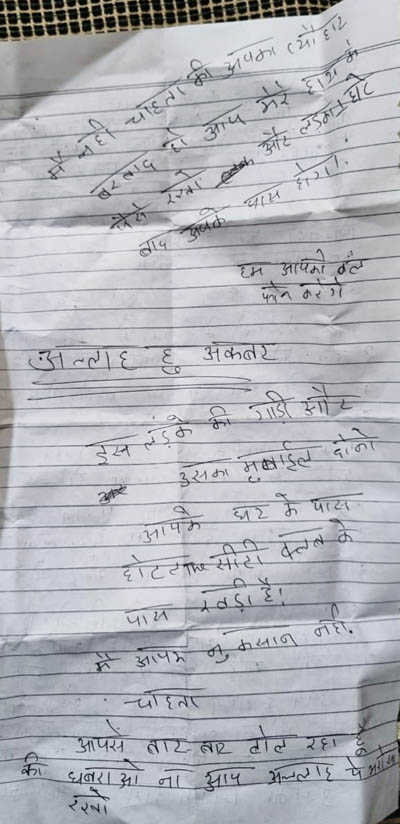 मै नही चाहता की आपका त्यौहार
बरबाद हो आप मेरे हाथ मे
पैसे रखो और लडका घंटे
बाद आपके पास होगा।
हम आपको कॅल
फोन करेगे
अल्लाह हु अकबर
इस लडके की गाड़ी और
उसका मुबाईल दोनो
आपके घर के पास
होटल सीटी क्लब के
पास खड़ी है।
मै आपका नुकसान नही
चाहता
आपसे बार-बार बोल रहा हूँ
की घबराओ ना आप अल्लाह पे भरोसा
रखो